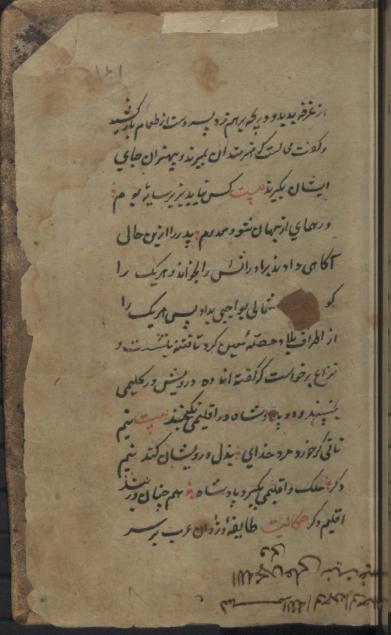 از غرفه بدید و دریچه برهم زد پسر دست از طعام باز کشید
و گفت محالست که هنرمندان بمیرند و بی‌هنران جای
ایشان بگیرند بیت کس نیاید بزیر سایهٔ بوم
ور همای از جهان شود معدوم پدر را ازین حال
آگاهی دادند برادرانش را بخواند و هر یک را
گوشمالی بواجبی بداد پس هر یک را
از اطراف بلاد حصهٔ معین کرد تا فتنه بنشست و
نزاع برخواست که گفته‌اند ده درویش در گلیمی
بخسپند و دو پادشاه در اقلیمی نگنجند بیت نیم
نانی گر خورد مرد خدای بذل درویشان کند نیم
دگر ملک اقلیمی بگیرد پادشاه همچنان در بند
اقلیم دگر حکایت طایفهٔ دزدان عرب بر سر